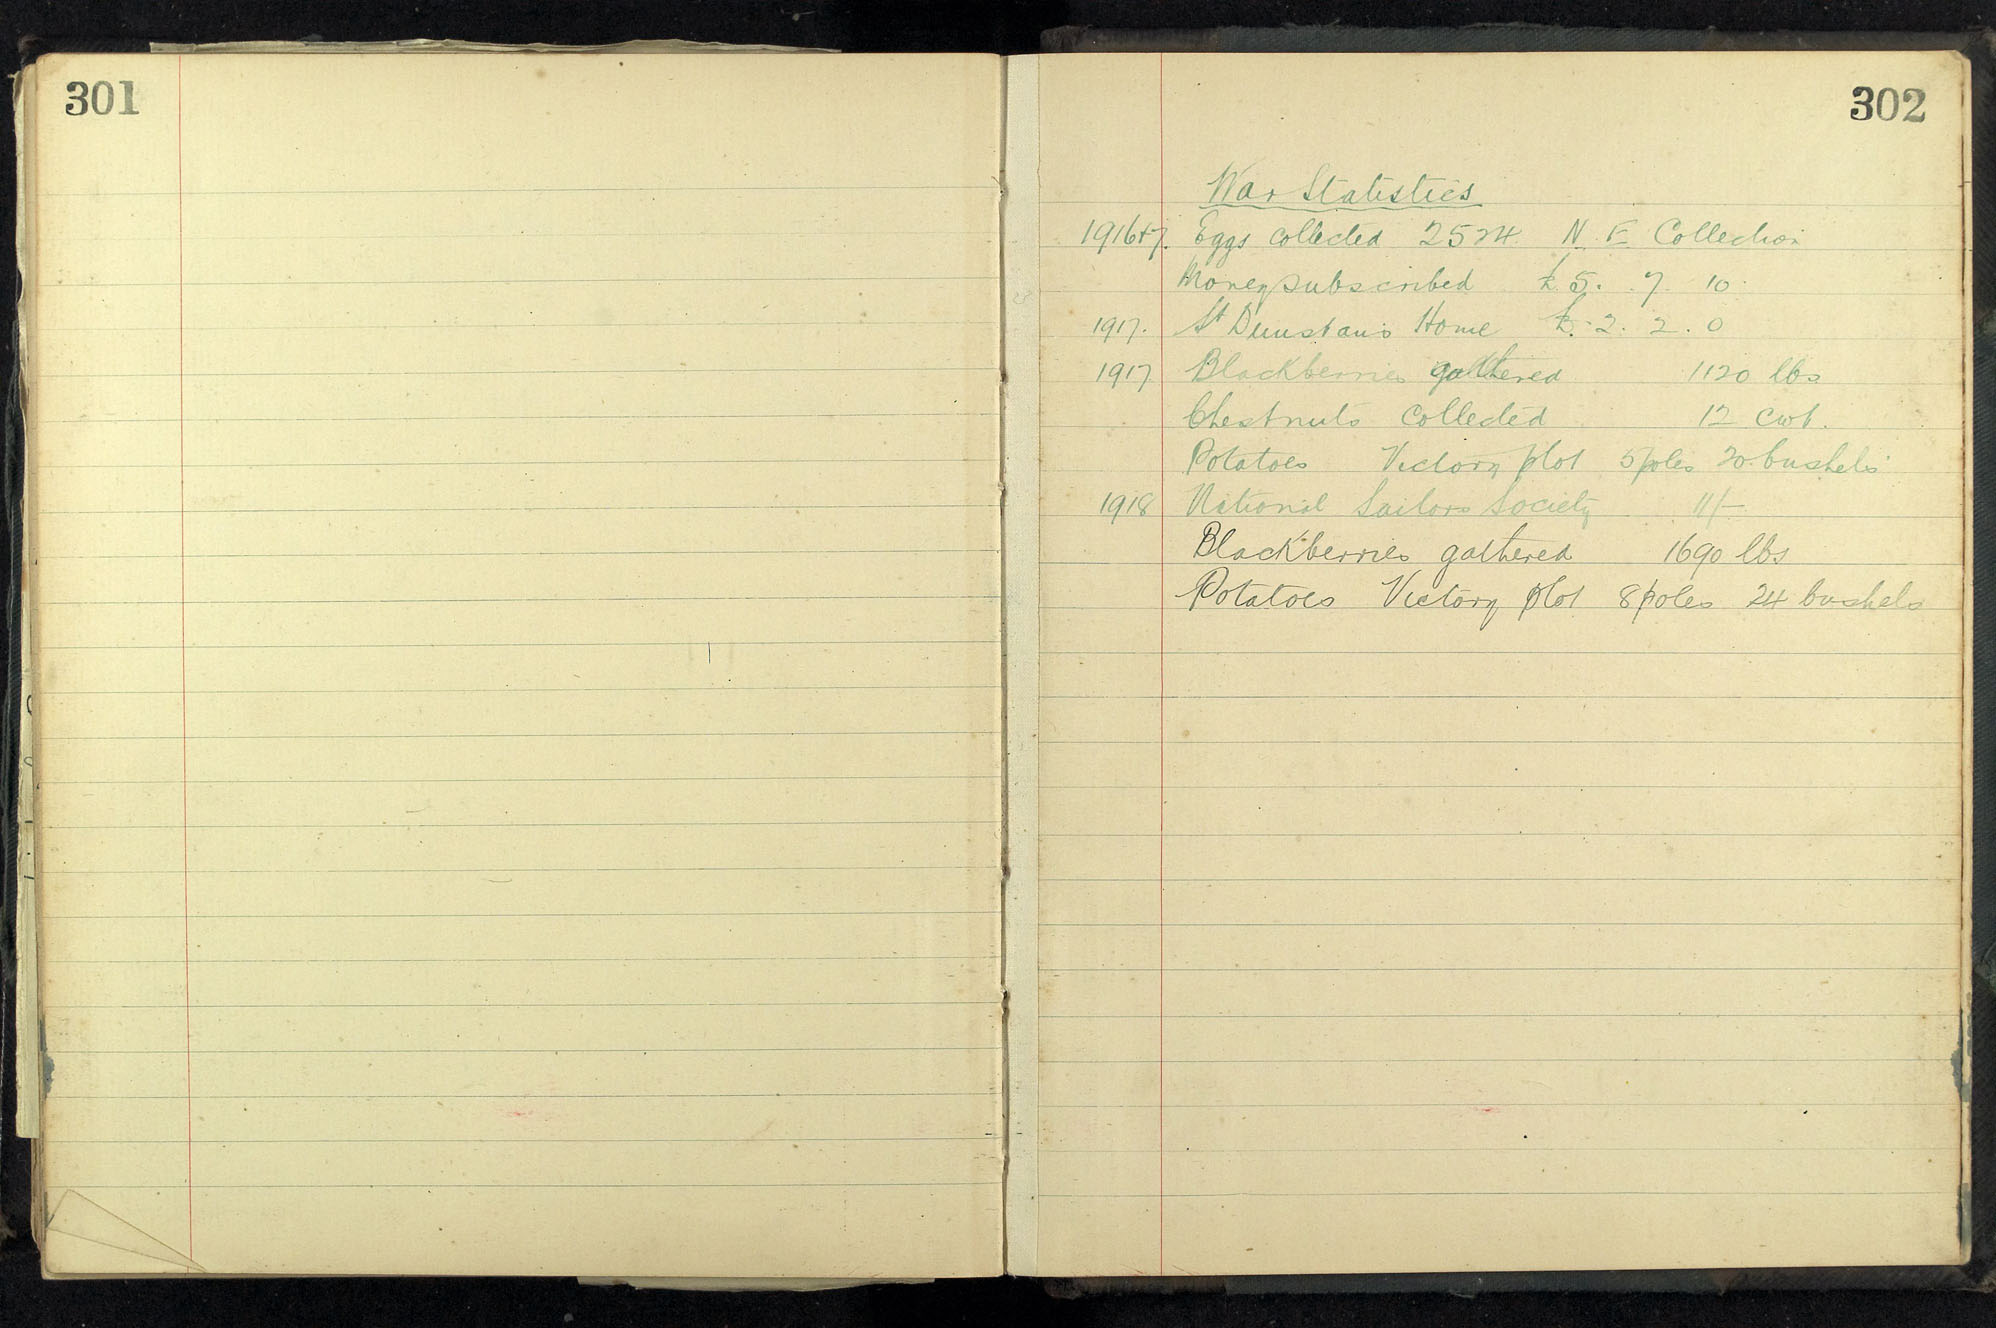 301
302
War Statistics
1916+7. Eggs collected 2524 N. E Collection
Money subscribed £5. 7. 10.
1917. St Dunstan's Home £. 2. 2. 0
1917 Blackberries gathered 1120 lbs
Chestnuts collected 12 cwt.
Potatoes Victory plot 5 poles 20 bushels
1918 National Sailors Society 11/-
Blackberries gathered 1690 lbs
Potatoes Victory plot 8 poles 24 bushels